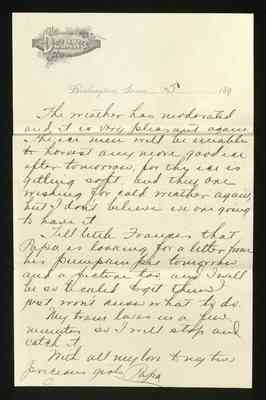 DELANO
Burlington, Iowa 189
The weather has moderated
and it is very pleasant again.
The ice men will be unable
to harvest any more good ice
after tomorrow, for the ice is
getting soft and they are
wishing for cold weather again,
but I don't believe we are going
to have it.
Tell little Frances that
Papa is looking for a letter from
his pumpkin pie tomorrow
and a picture too and I will
be so tickled to get them I
just wont know what to do.
My train leaves in a few
minutes so I will stop and
catch it.
With all my love to my two
precious girls Papa